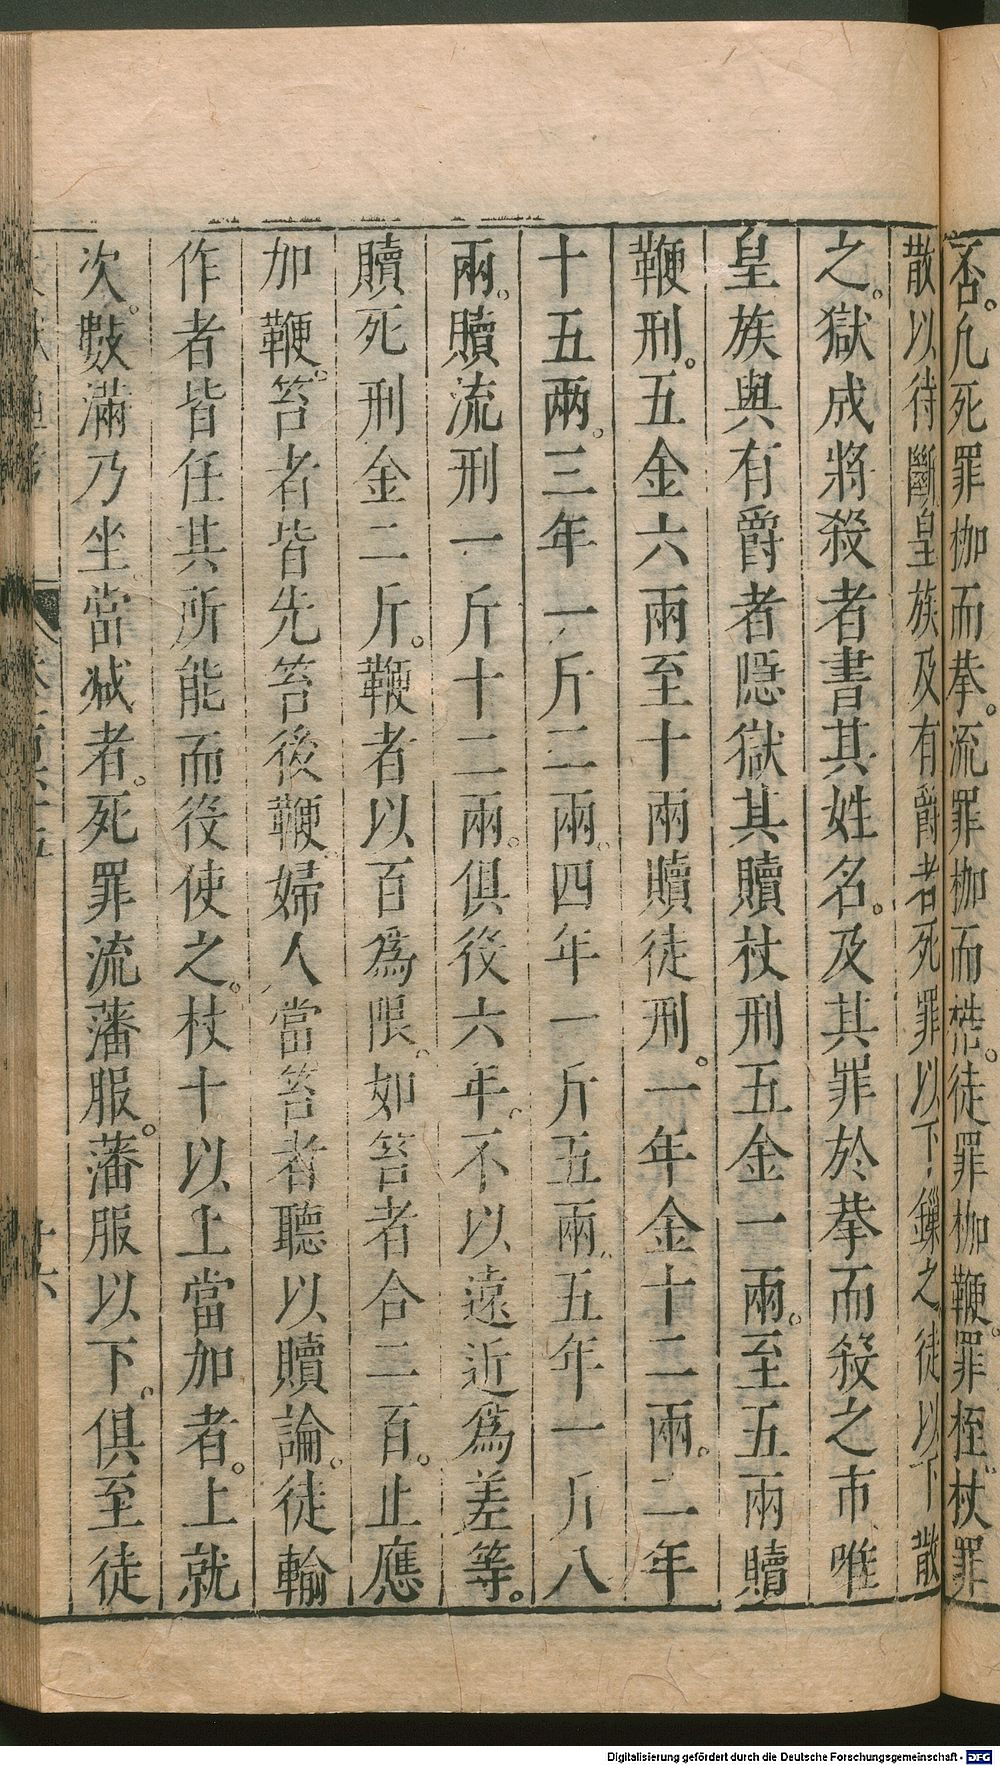 否。凢死罪枷而拲。流罪枷而梏。徒罪枷鞭。罪桎。杖罪
散以待斷皇族及有爵者死罪以下鏁之徒以下散
之。獄成將殺者書其姓名。及其罪於拲而殺之市唯
皇族與有爵者隱獄其贖杖刑五金一兩。至五兩贖
鞭刑。五金六兩至十兩贖徒刑。一年金十二兩。二年
十五兩。三年一斤二兩。四年一斤五兩。五年一斤八
兩。贖流刑一斤十二兩。俱役六年。不以遠近爲差等。
贖死刑金二斤。鞭者以百爲限。如笞者合二百。止應
加鞭。笞者皆先笞後鞭。婦人當笞者聽以贖論。徒輸
作者皆任其所能而役使之。杖十以上當加者。上就
次。數滿乃坐。當減者。死罪流藩服。藩服以下。俱至徒
十六
Digitalisierung gefördert durch die Deutsche Forschungsgemeinschaft - DFG